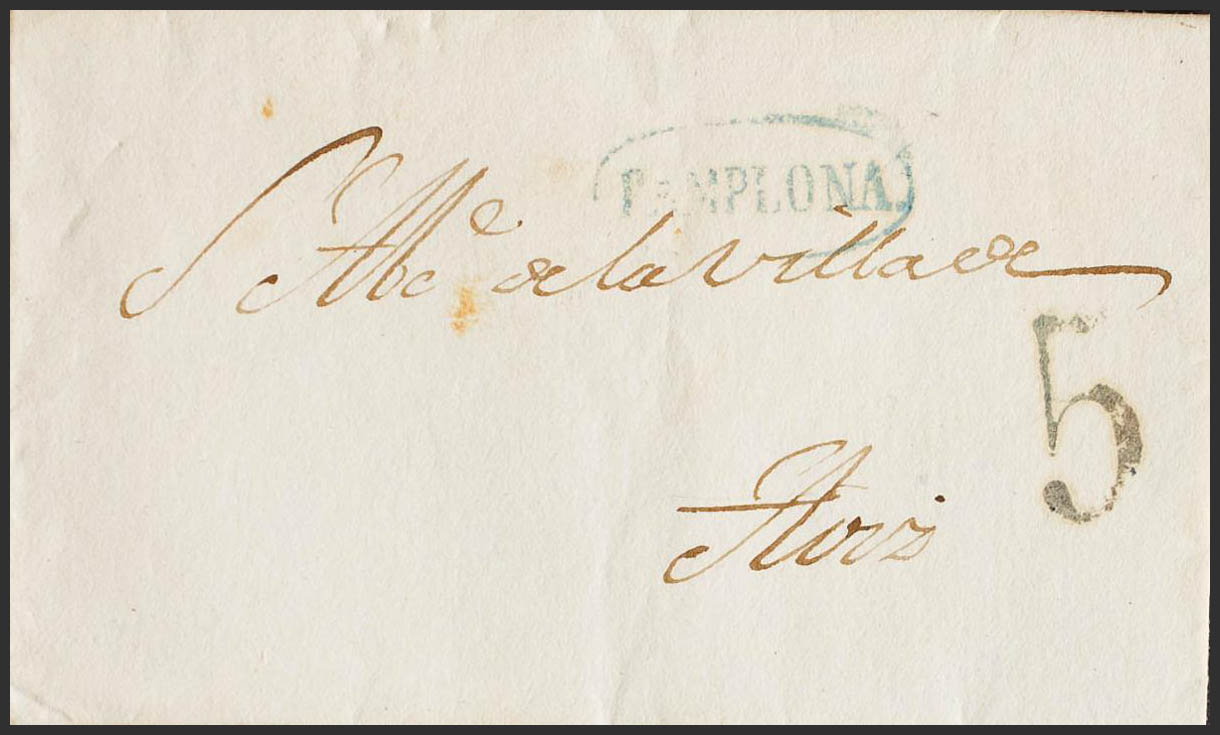 PAMPLONA.
S.r Alc.e de la villa de
5
Aoiz